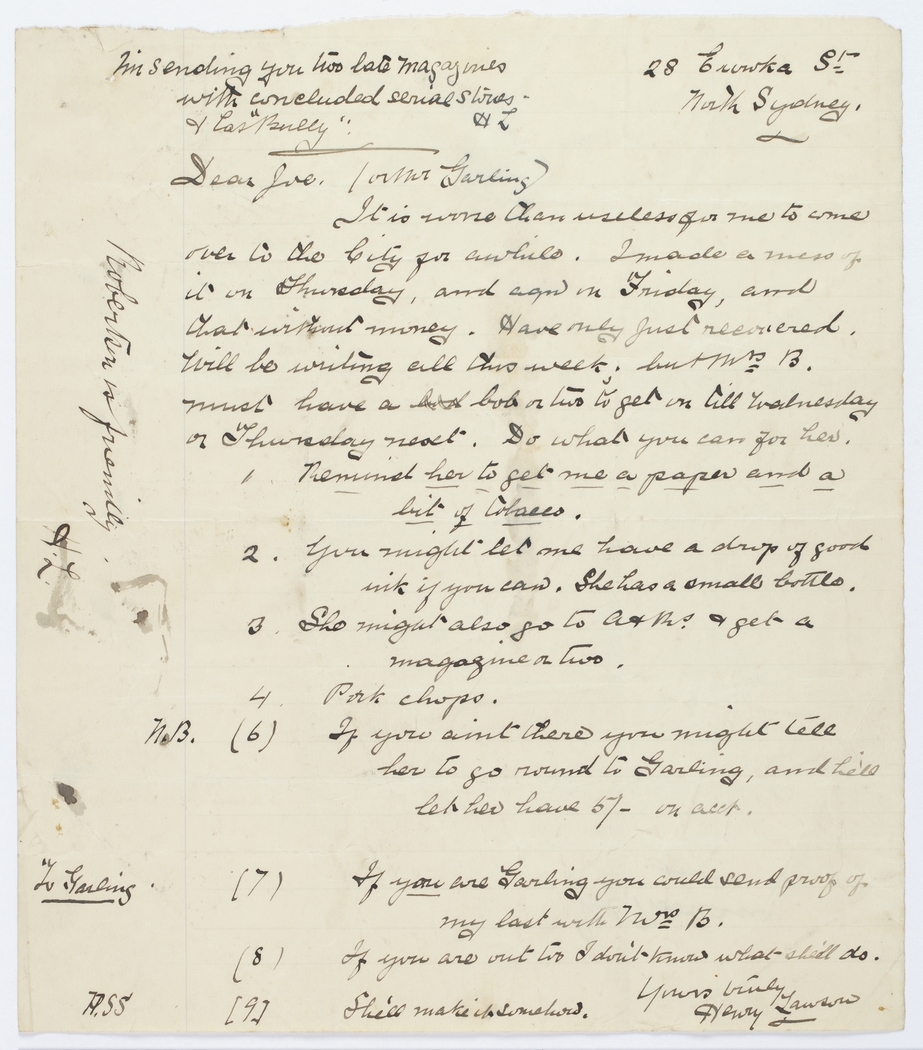 I'm sending you two late magazines
with concluded serial stories -
& Las' "Bully".
HL
28 Euroka St
North Sydney.
Dear Joe. (or Mr Garling)
It is worse than useless for me to come
over to the City for awhile. I made a mess of
it on Thursday, and agn on Friday, and
that without money. Have only just recovered.
Will be writing all this week, but Mrs B.
must have a bob or two to get on till Wednesday
or Thursday next. Do what you can for her.
1 Remind her to get me a paper and a
bit of tobacco.
2. You might let me have a drop of good
ink if you can. She has a small bottle.
3. She might also go to A & R's & get a
magazine or two.
4 Pork chops.
N.B. (6) If you aint there you might tell
her to go round to Garling, and he'll
let her have 5/- on acct.
"To Garling. (7) If you are Garling you could send proof of
my last with Mrs B.
(8) If you are out too I don't know what she'll do.
P.SS [9] She'll make it somehow.
Yours truly
Henry Lawson
Robertson is friendly.
H.L.